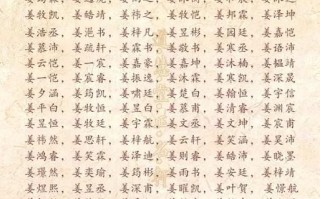 姜牧凯，姜皓靖，姜祎之，姜牧恺，姜邦霖，姜泽坤
姜浩丞，姜浥书，姜梓凡，姜昱彬，姜园廷，姜嘉楠
姜慕沛，姜疏轩，姜霖书，姜敬书，姜寒丞，姜语沛
姜云恺，姜一宸，姜嘉豪，姜嘉沐，姜楠韫，姜昱恺
姜嘉宸，姜宸睿，姜嘉懿，姜沐霖，姜寒凯，姜深晟
姜夕涵，姜筠凯，姜啸廷，姜楚白，姜翰恒，姜宸宇
姜平白，姜牧恒，姜昱白，姜雨慕，姜清睿，姜渊宸
姜昱恒，姜宇霖，姜文垚，姜文丞，姜坤沛，姜宸甫
姜祎然，姜思轩，姜梓航，姜云轩，姜笑涵，姜语墨
姜鸿睿，姜笑霖，姜泽迪，姜则皓，姜皓沛，姜晓墨
姜璟然，姜奕瑜，姜筠彬，姜雨书，姜安书，姜梓靖
姜煜熙，姜昱丞，姜深甫，姜曜凯，姜叶贺，姜憬航